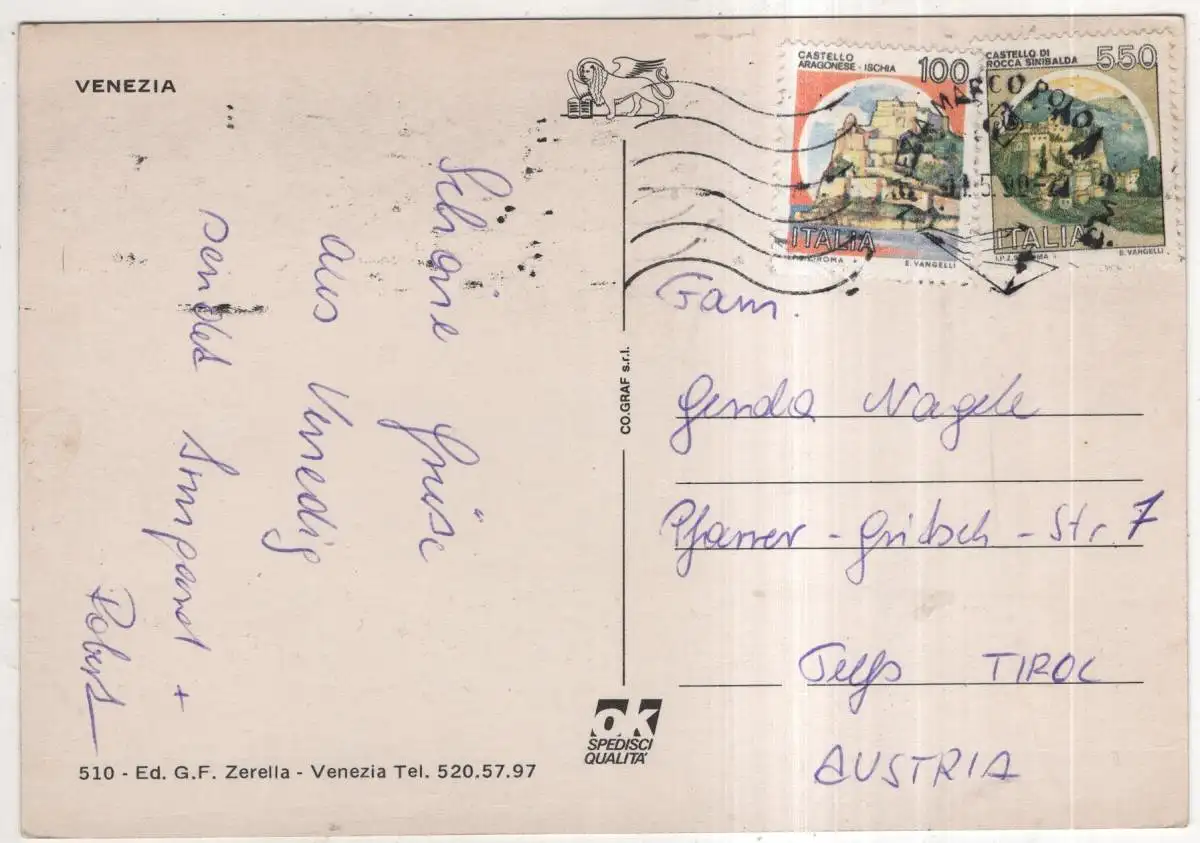 VENEZIA
CASTELLO
ARAGONESE - ISCHIA
100
ITALIA
I.P.Z.S. ROMA
E. VANGELLI
CASTELLO DI
ROCCA SINIBALDA
550
ITALIA
I.P.Z.S. ROMA
E. VANGELLI
MARCO POLO
Schöne Grüße
aus Venedig
sendet +
Robert
CO.GRAF s.r.l.
Fam.
Gerda Nagele
Pfarrer-Gritsch-Str. 7
Telfs TIROL
AUSTRIA
ok
SPEDISCI
QUALITÀ
510 - Ed. G.F. Zerella - Venezia Tel. 520.57.97